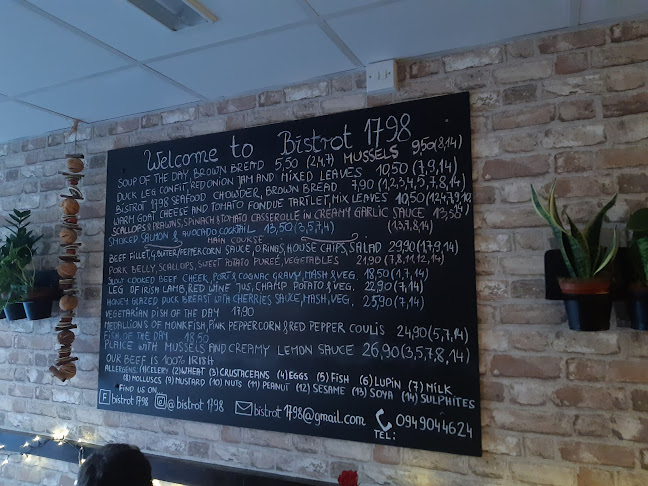 Welcome to Bistrot 1798
SOUP OF THE DAY, BROWN BREAD 5,50 (2,4,7) MUSSELS 9,50 (8,14)
DUCK LEG CONFIT, RED ONION JAM AND MIXED LEAVES 10,50 (7,9,14)
BISTROT 1798 SEAFOOD CHOWDER, BROWN BREAD 7,90 (1,2,3,4,5,7,8,14)
WARM GOAT CHEESE AND TOMATO FONDUE TARTLET, MIX LEAVES 10,50
SCALLOPS & PRAWNS, SPINACH & TOMATO CASSEROLLE IN CREAMY GARLIC SAUCE 13,50
SMOKED SALMON & AVOCADO COCKTAIL 13,50 (3,5,7,4) (1,3,7,8,14)
MAIN COURSE
BEEF FILLET, G.BUTTER/PEPPERCORN SAUCE, O.RINGS, HOUSE CHIPS, SALAD 29,90 (1,7,9,14)
PORK BELLY, SCALLOPS, SWEET POTATO PUREE, VEGETABLES 21,90 (7,8,11,12,14)
SLOW COOKED BEEF CHEEK, PORT & COGNAC GRAVY, MASH & VEG. 18,50 (1,7,14)
LEG OF IRISH LAMB, RED WINE JUS, CHAMP POTATO & VEG. 22,90 (7,14)
HONEY GLAZED DUCK BREAST WITH CHERRIES SAUCE, MASH, VEG. 25,90 (7,14)
VEGETARIAN DISH OF THE DAY 17,90
MEDALLIONS OF MONKFISH, PINK PEPPERCORN & RED PEPPER COULIS 24,90 (5,7,14)
FISH OF THE DAY 18,50
PLAICE WITH MUSSELS AND CREAMY LEMON SAUCE 26,90 (3,5,7,8,14)
OUR BEEF IS 100% IRISH
ALLERGENS: (1) CELERY (2) WHEAT (3) CRUSTACEANS (4) EGGS (5) FISH (6) LUPIN (7) MILK
(8) MOLLUSCS (9) MUSTARD (10) NUTS (11) PEANUT (12) SESAME (13) SOYA (14) SULPHITES
FIND US ON
f bistrot 1798 @ bistrot 1798 bistrot 1798@gmail.com TEL: 0949044624